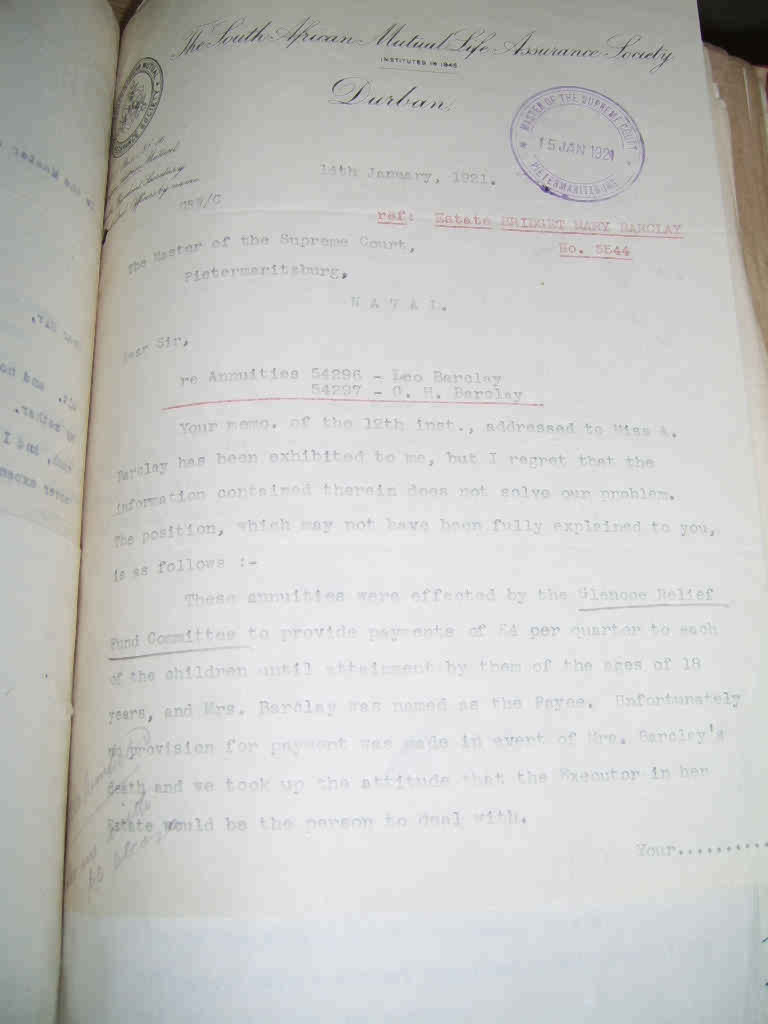 The South African Mutual Life Assurance Society
INSTITUTED IN 1845
Durban,
MASTER OF THE SUPREME COURT
15 JAN 1921
PIETERMARITZBURG
14th January, 1921.
ref: Estate BRIDGET MARY BARCLAY
No. 5544
The Master of the Supreme Court,
Pietermaritzburg,
N A T A L.
Dear Sir,
re Annuities 54296 - Leo Barclay
54297 - C. H. Barclay
Your memo. of the 12th inst., addressed to Miss A.
Barclay has been exhibited to me, but I regret that the
information contained therein does not solve our problem.
The position, which may not have been fully explained to you,
is as follows :-
These annuities were effected by the Glencoe Relief
Fund Committee to provide payments of £4 per quarter to each
of the children until attainment by them of the ages of 18
years, and Mrs. Barclay was named as the Payee. Unfortunately
no provision for payment was made in event of Mrs. Barclay's
death and we took up the attitude that the Executor in her
Estate would be the person to deal with.
Your..........